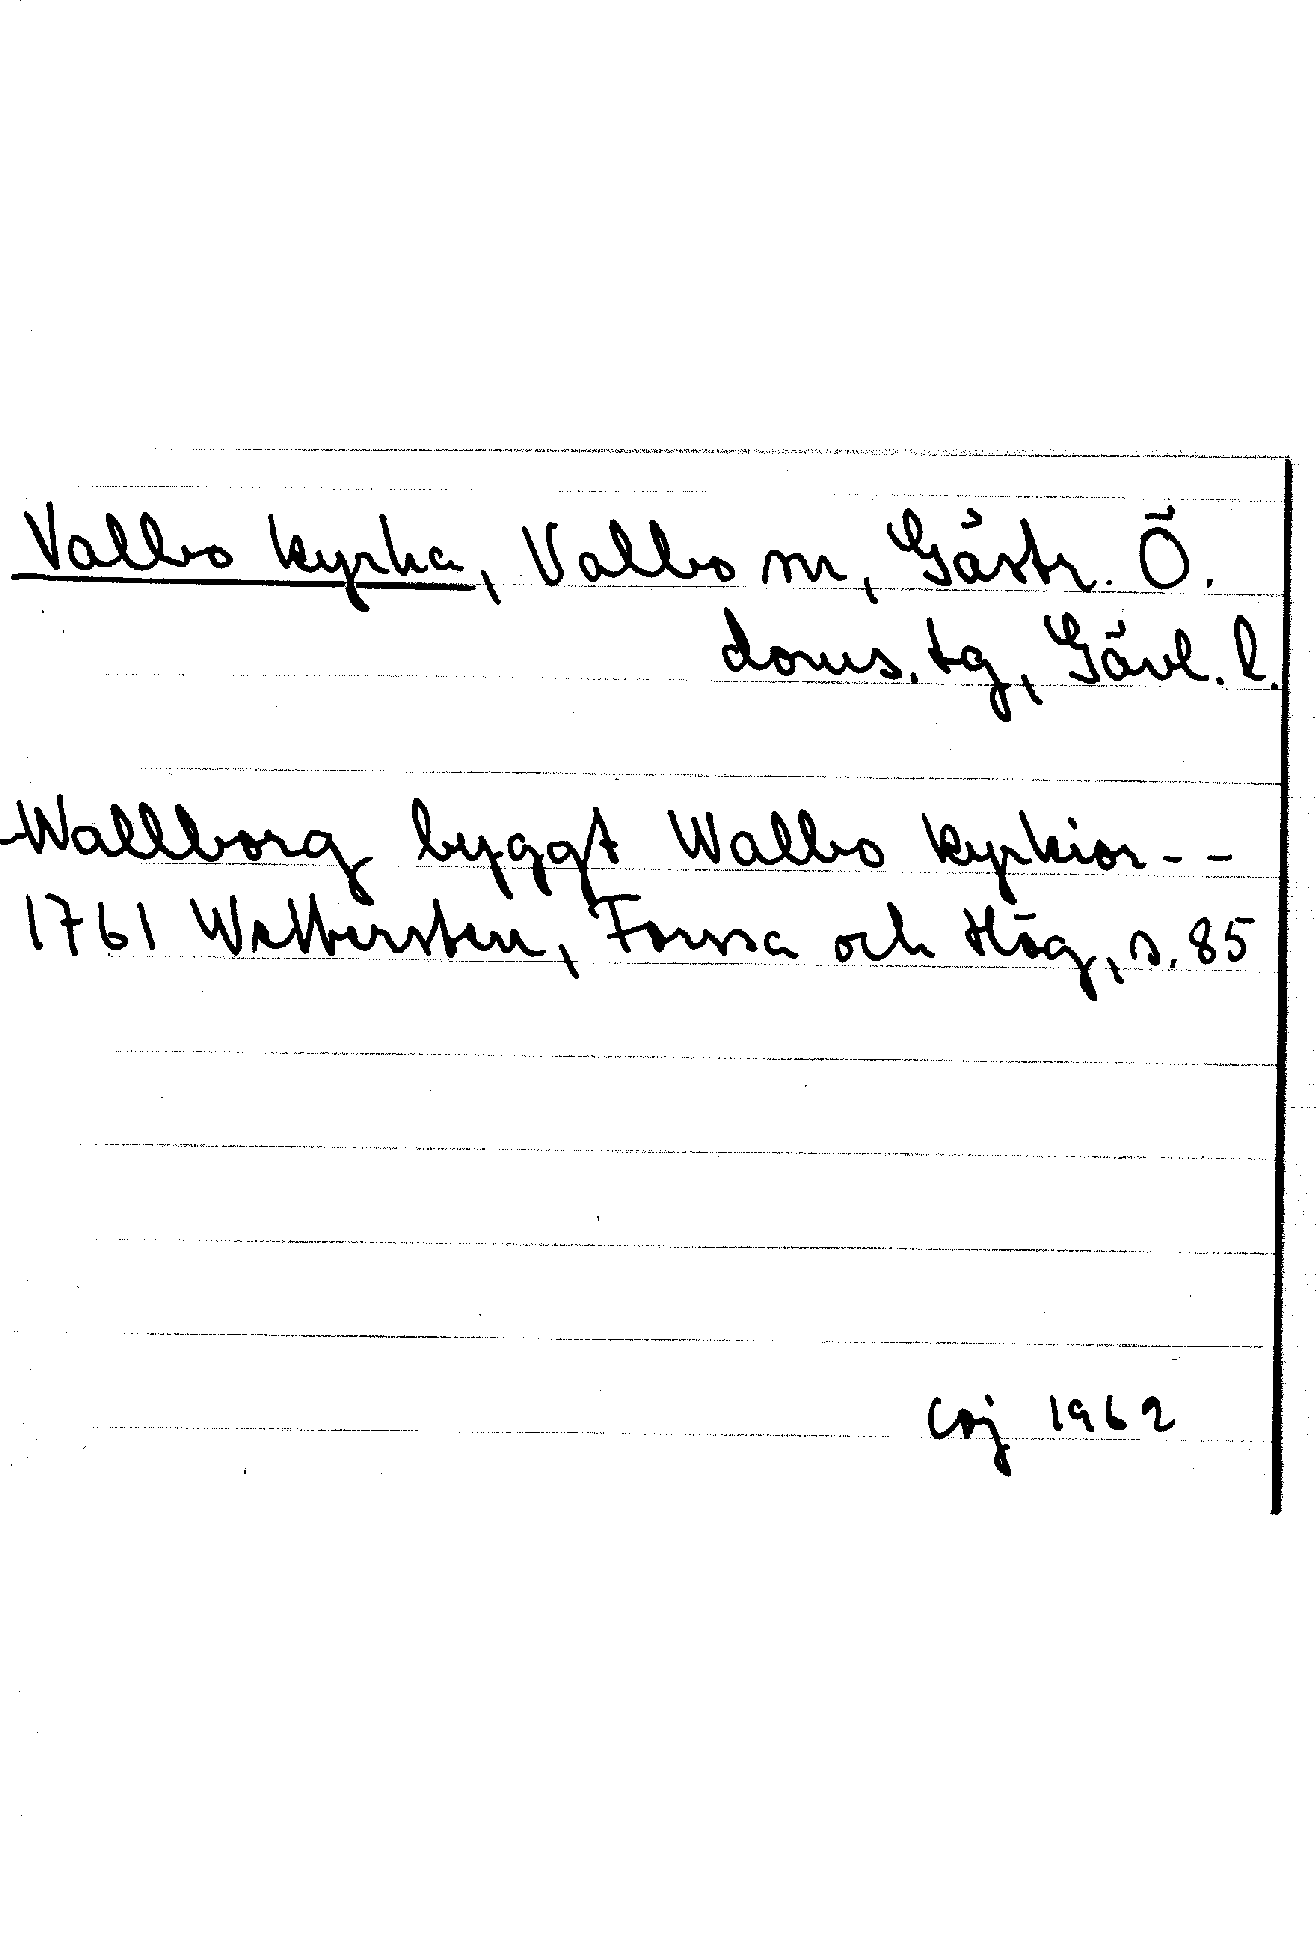 Valbo kyrka, Valbo sn, Gästr. Ö.
doms. tg, Gävl. l.
Wallborg byggt Walbo kyrkior--
1761 Wettersten, Forssa och Hög, s. 85
CGJ 1962